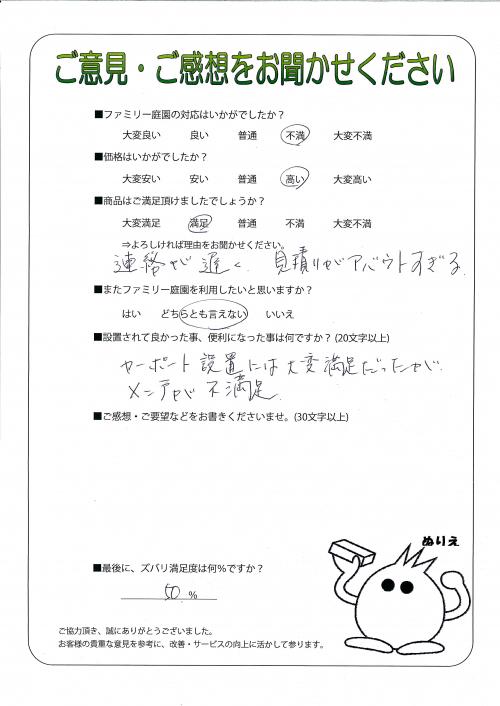 ご意見・ご感想をお聞かせください
■ファミリー庭園の対応はいかがでしたか？
大変良い 良い 普通 不満 大変不満
■価格はいかがでしたか？
大変安い 安い 普通 高い 大変高い
■商品はご満足頂けましたでしょうか？
大変満足 満足 普通 不満 大変不満
⇒よろしければ理由をお聞かせください。
連絡が遅く、見積りがアバウトすぎる
■またファミリー庭園を利用したいと思いますか？
はい どちらとも言えない いいえ
■設置されて良かった事、便利になった事は何ですか？(20文字以上)
カーポート設置には大変満足だったが、
メンテが不満足
■ご感想・ご要望などをお書きくださいませ。(30文字以上)
ぬりえ
■最後に、ズバリ満足度は何%ですか？
50 %
ご協力頂き、誠にありがとうございました。
お客様の貴重な意見を参考に、改善・サービスの向上に活かして参ります。